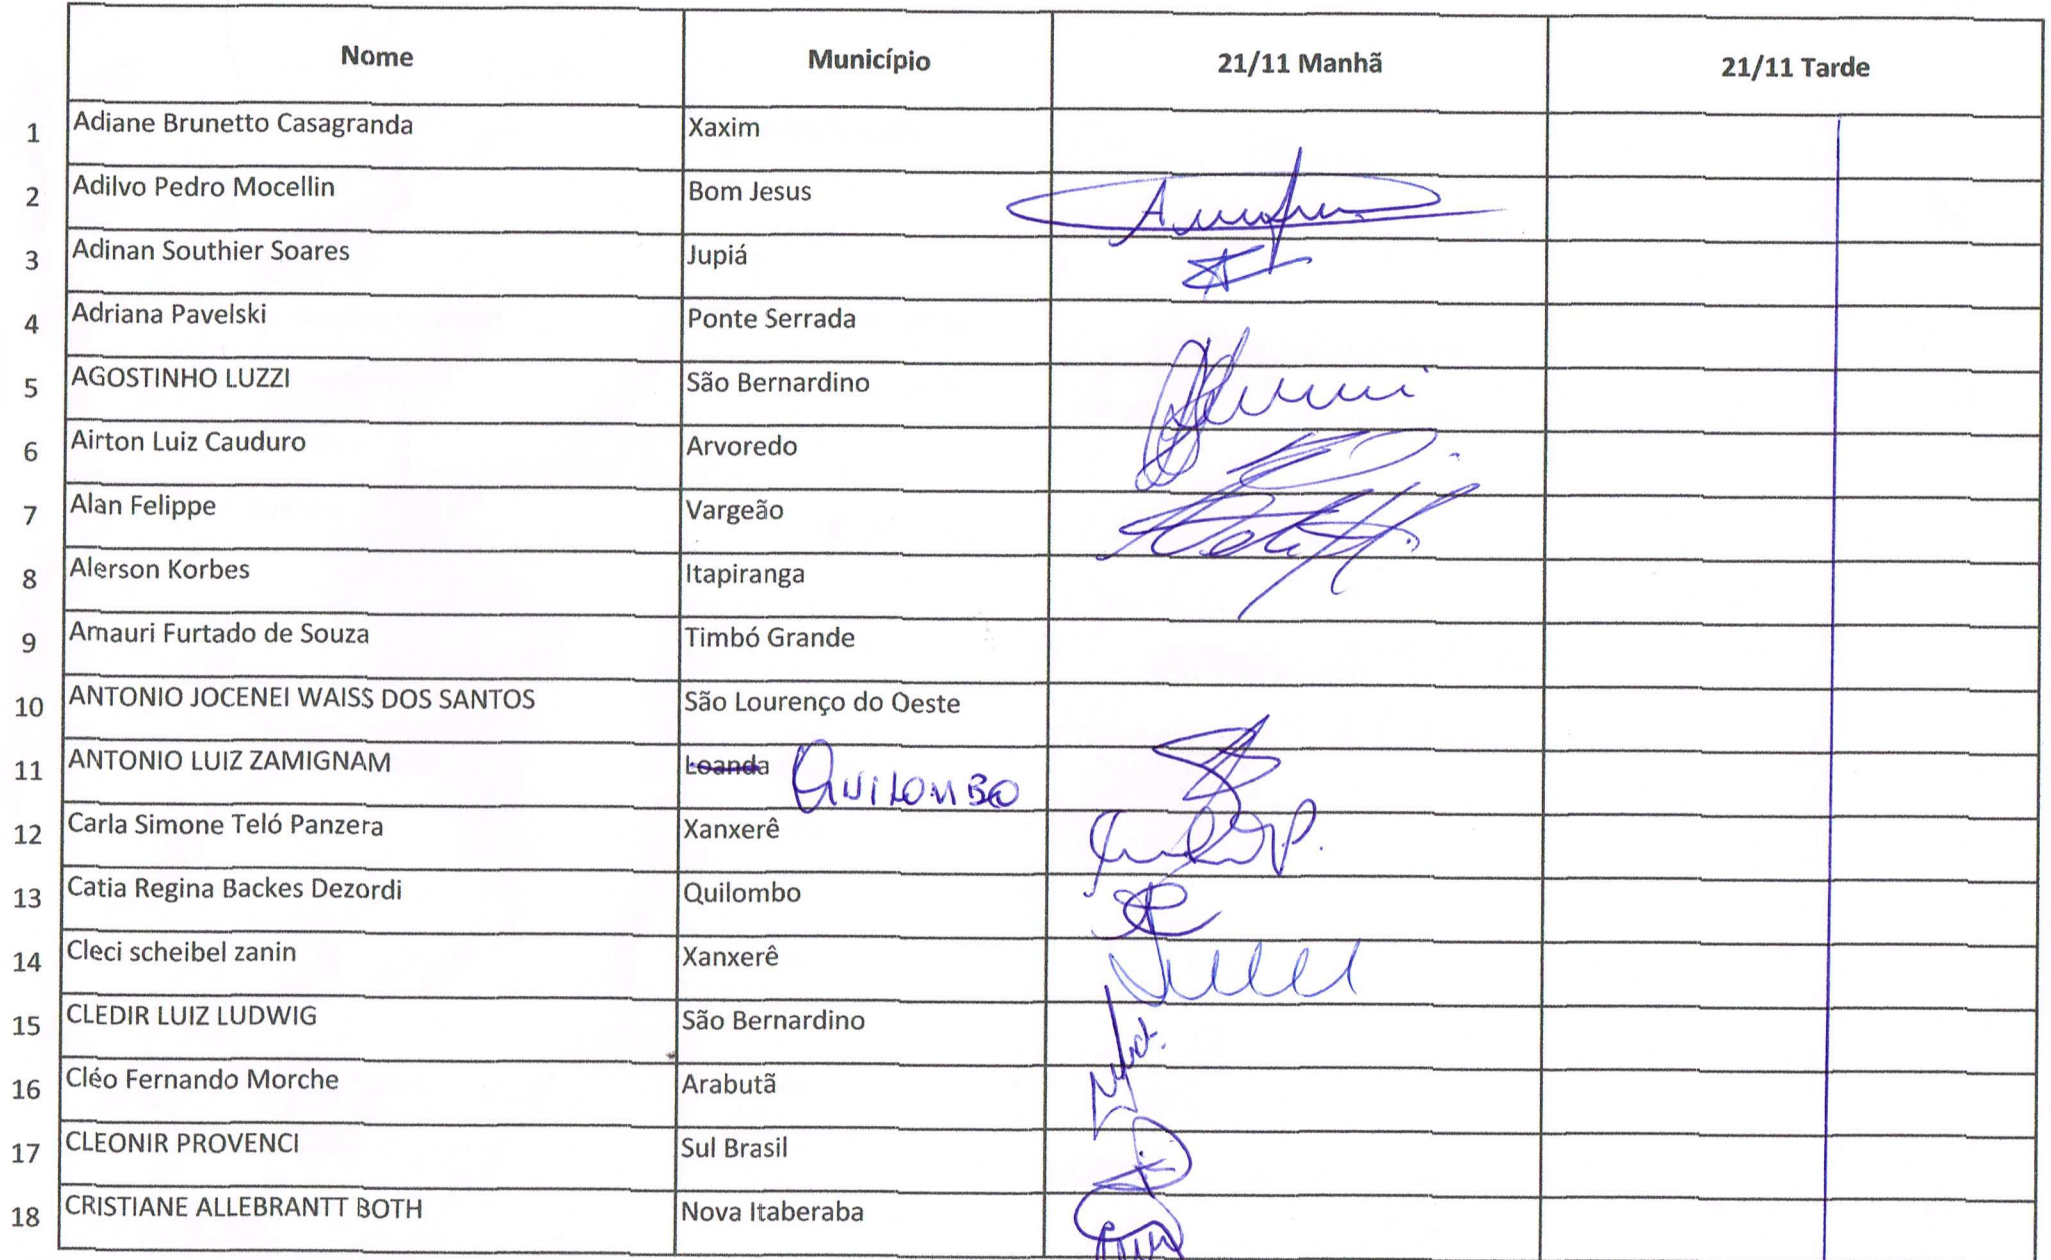 Nome Município 21/11 Manhã 21/11 Tarde
1 Adiane Brunetto Casagranda Xaxim
2 Adilvo Pedro Mocellin Bom Jesus
3 Adinan Southier Soares Jupiá
4 Adriana Pavelski Ponte Serrada
5 AGOSTINHO LUZZI São Bernardino
6 Airton Luiz Cauduro Arvoredo
7 Alan Felippe Vargeão
8 Alerson Korbes Itapiranga
9 Amauri Furtado de Souza Timbó Grande
10 ANTONIO JOCENEI WAISS DOS SANTOS São Lourenço do Oeste
11 ANTONIO LUIZ ZAMIGNAM Loanda QUILOMBO
12 Carla Simone Teló Panzera Xanxerê
13 Catia Regina Backes Dezordi Quilombo
14 Cleci scheibel zanin Xanxerê
15 CLEDIR LUIZ LUDWIG São Bernardino
16 Cléo Fernando Morche Arabutã
17 CLEONIR PROVENCI Sul Brasil
18 CRISTIANE ALLEBRANTT BOTH Nova Itaberaba